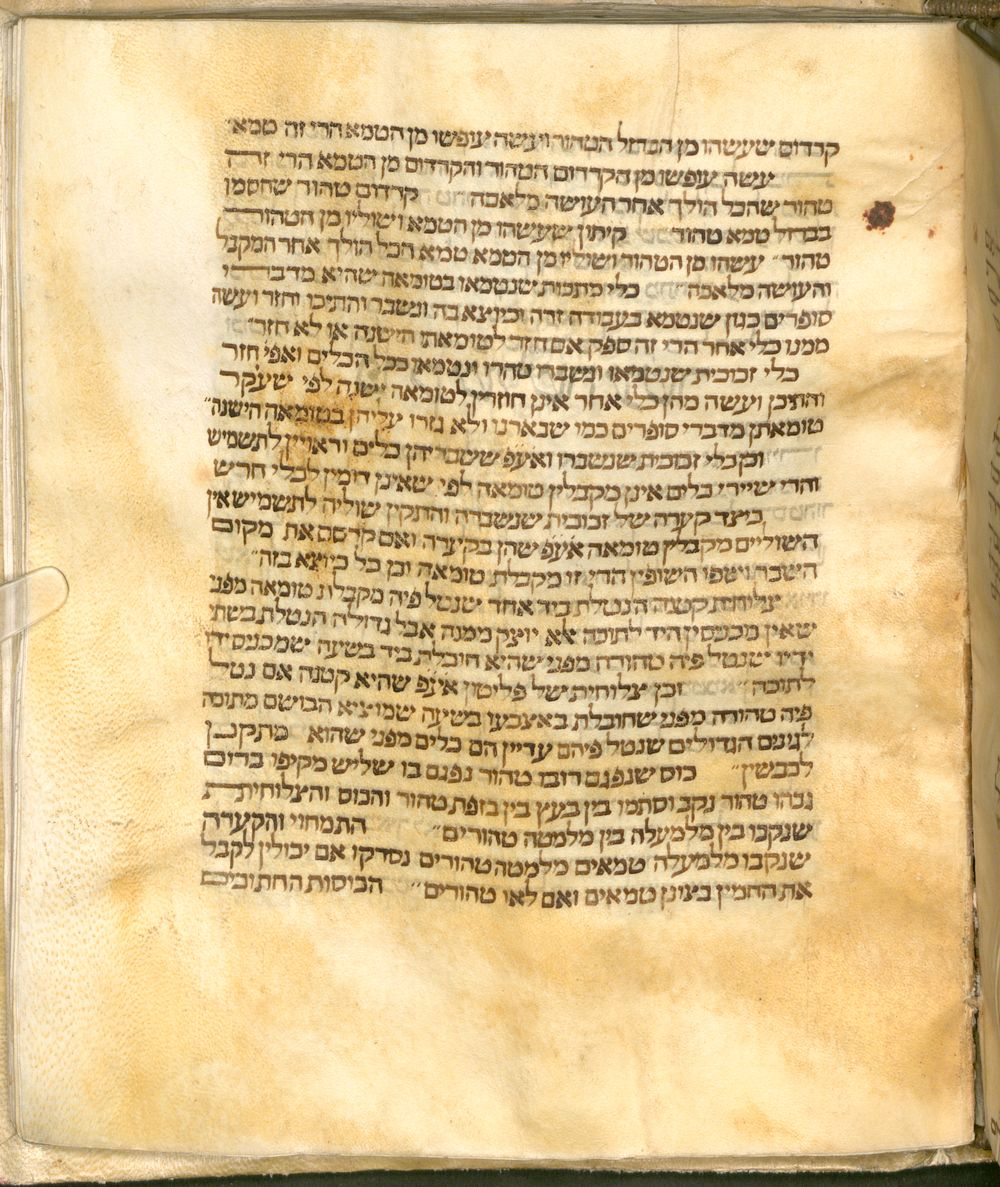 קרדום שעשהו מן הברזל הטהור ועשה עופשו מן הטמא הרי זה טמא״
עשה עופשו מן הקרדום הטהור והקרדום מן הטמא הרי זה
טהור שהכל הולך אחר העושה מלאכה״ קרדום טהור שחסמן
בברזל טמא טהור קיתון שעשהו מן הטמא ושוליו מן הטהור
טהור״ עשהו מן הטהור ושוליו מן הטמא טמא הכל הולך אחר המקבל
והעושה מלאכה״ כלי מתכות שנטמאו בטומאה שהיא מדברי
סופרים כגון שנטמא בעבודה זרה וכיוצא בה ונשבר והתיכו וחזר ועשה
ממנו כלי אחר הרי זה ספק אם חזר לטומאתו הישנה או לא חזר״
כלי זכוכית שנטמאו ונשברו טהרו ונטמאו ככל הכלים ואפי׳ חזר
והתיכן ועשה מהן כלי אחר אינן חוזרין לטומאה ישנה לפי שעקר
טומאתן מדברי סופרים כמו שבארנו ולא גזרו עליהן בטומאה הישנה״
וכן כלי זכוכית שנשברו ואע׳פ׳ ששבריהן כלים וראויין לתשמיש
והרי שיירי כלים אינן מקבלין טומאה לפי שאינן דומין לכלי חרש
כיצד קערה של זכוכית שנשברה והתקין שוליה לתשמיש אין
השוליים מקבלין טומאה אע׳פ׳ שהן כקערה ואם קרסם את מקום
השבר ושפו השופין הרי זו מקבלת טומאה וכן כל כיוצא בזה״
צלוחית קטנה הנטלת ביד אחד שנטל פיה מקבלת טומאה מפני
שאין מכניסין היד לתוכה לא יוצק ממנה אבל גדולה הנטלת בשתי
ידיו שנטל פיה טהורה מפני שהיא חובלת ביד בשעה שמכניס ידו
לתוכה״ וכן צלוחית של פליטון אע׳פ׳ שהיא קטנה אם נטל
פיה טהורה מפני שחובלת באצבעו בשעה שמוציא הבושם מתוכה
לגינים הגדולים שנטל פיהם עדיין הם כלים מפני שהוא מתקנן
לכבשין״ כוס שנפגם רובו טהור נפגם בו שליש מקיפו ברום
גבהו טהור נקבו וסתמו בין בעץ בין בזפת טהור והכוס והצלוחית
שנקבו בין מלמעלה בין מלמטה טהורים״ התמחוי והקערה
שנקבו מלמעלה טמאים מלמטה טהורים נסדקו אם יכולין לקבל
את החמין כצונן טמאים ואם לאו טהורים״ הכוסות החתוכים